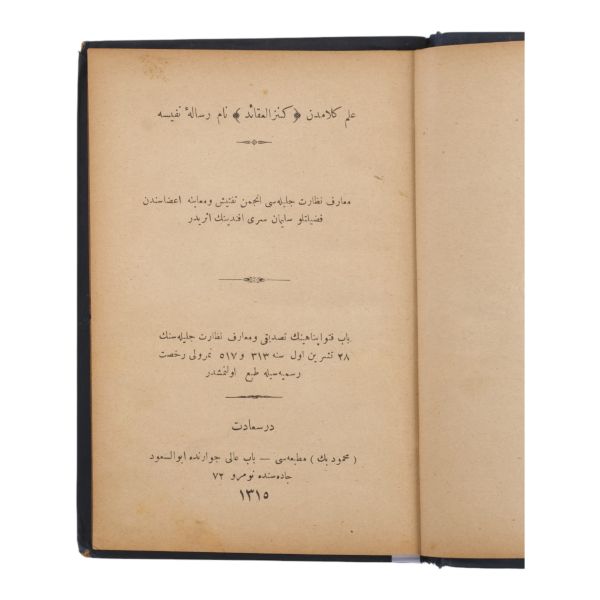 علم كلامدن ﴿ كنزالعقائد ﴾ نام رسالهٔ نفیسه
معارف نظارت جلیله‌سی انجمن تفتیش ومعاینه اعضاسندن
فضیلتلو سلیمان سری افندینك اثریدر
باب فتواپناهینك تصدیقی ومعارف نظارت جلیله‌سنك
٢٨ تشرین اول سنه ٣١٣ و ٥١٧ نمرولی رخصت
رسمیه‌سیله طبع اولنمشدر
درسعادت
( محمود بك ) مطبعه‌سی — باب عالی جوارنده ابوالسعود
جاده‌سنده نومرو ٧٢
١٣١٥